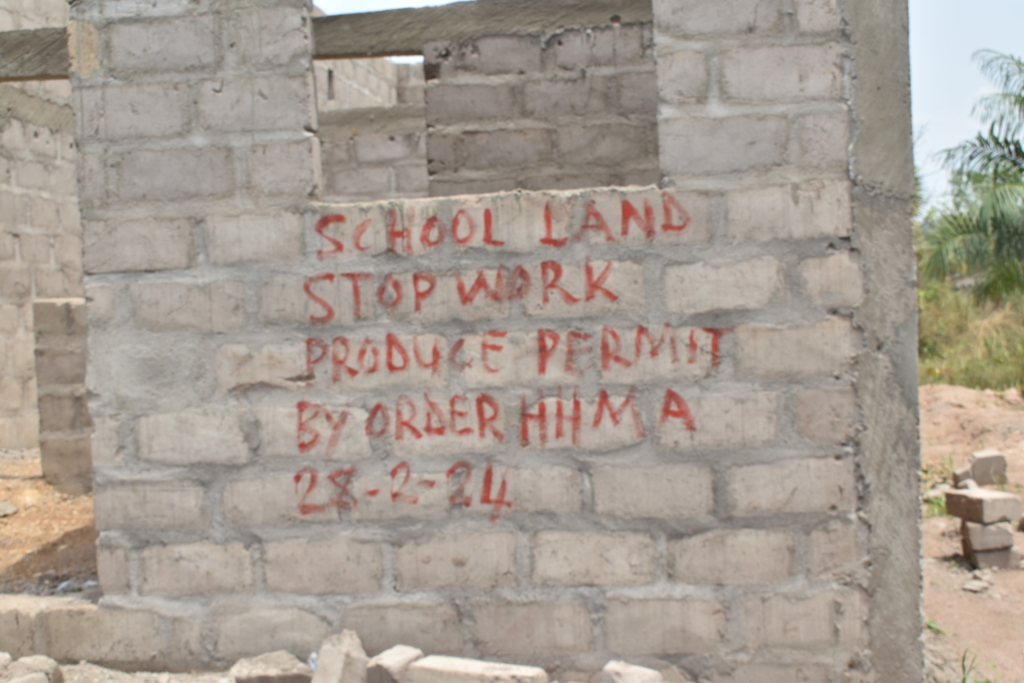 SCHOOL LAND
STOP WORK
PRODUCE PERMIT
BY ORDER HHMA
28-2-24